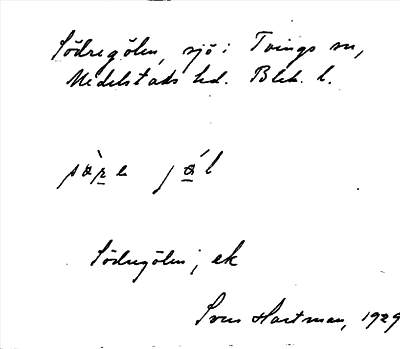 Södregölen, sjö i Tvings sn,
Medelstads hd. Blek. l.
sø̀re jǿl
Södregölen; ek
Sven Hartman, 1929